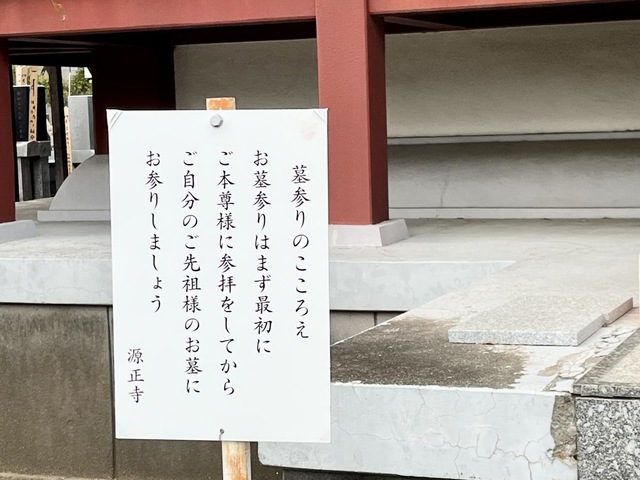 墓参りのこころえ
お墓参りはまず最初に
ご本尊様に参拝をしてから
ご自分のご先祖様のお墓に
お参りしましょう
源正寺